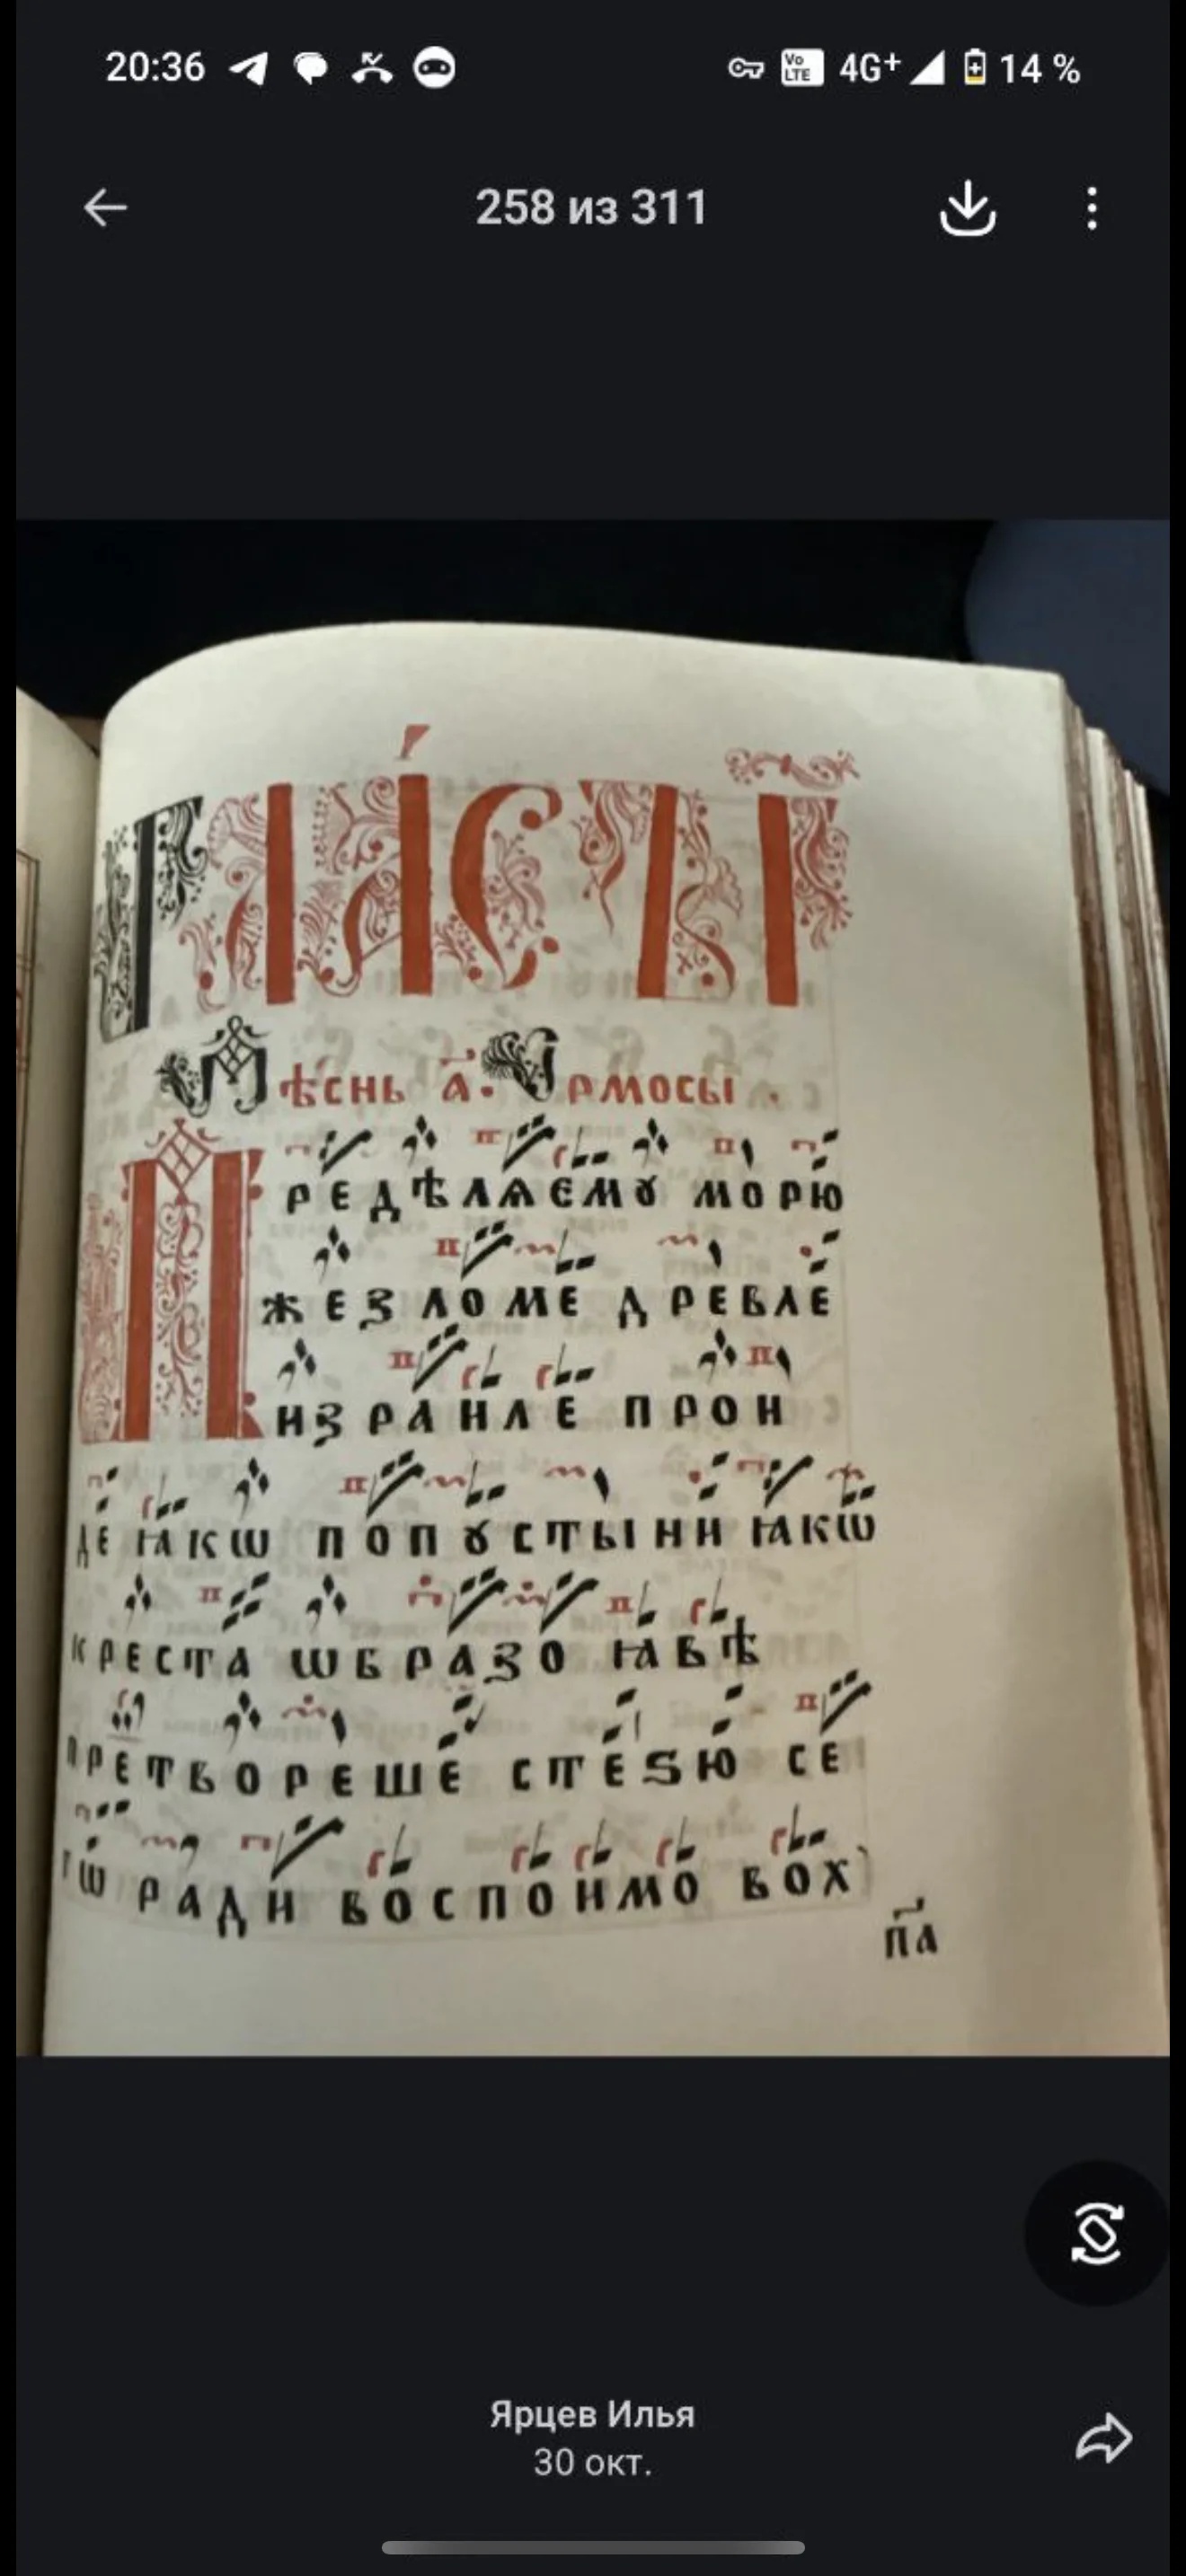 20:36 4G+ 14 %
258 из 311
Гласъ г҃
Пѣснь а҃. Ирмосы .
Предѣлѧемꙋ морю
жезломе древле
изранле прои
де ꙗкѡ попꙋстыни ꙗкѡ
креста ѡбразо ꙗвѣ
претвореше стеѕю се
гѡ ради воспоимо вох
па
Ярцев Илья
30 окт.